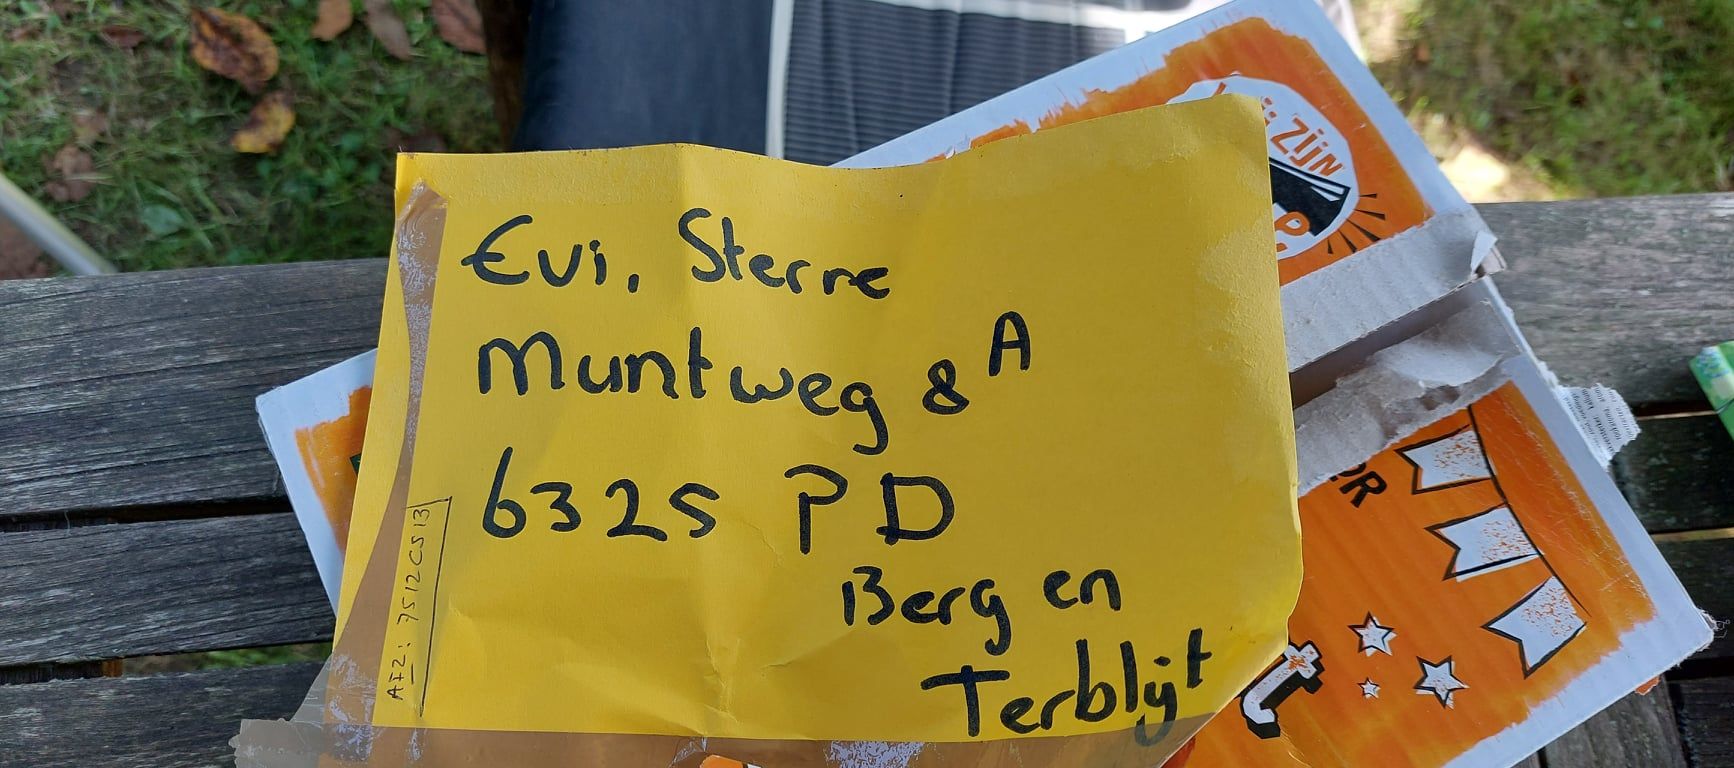 Evi, Sterre
Muntweg 8 A
6325 PD
Berg en
Terblijt
AFZ: 7512CS 13
ZIJN